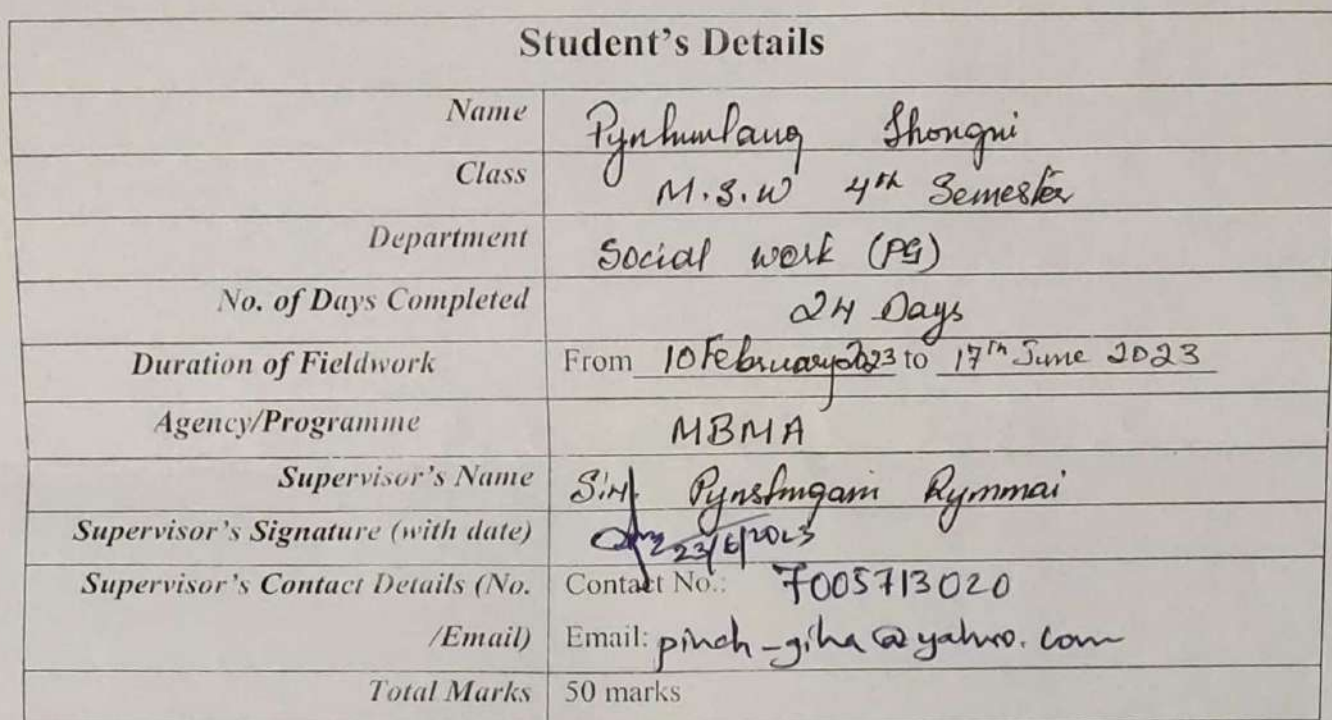 Student's Details
Name Pynhunlang Shongni
Class M.S.W 4th Semester
Department Social work (PG)
No. of Days Completed 24 Days
Duration of Fieldwork From 10 February 2023 to 17th June 2023
Agency/Programme MBMA
Supervisor's Name Rymmai
Supervisor's Signature (with date) 23/6/2023
Supervisor's Contact Details (No. Contact No.: 7005713020
/Email) Email: @yahoo.com
Total Marks 50 marks